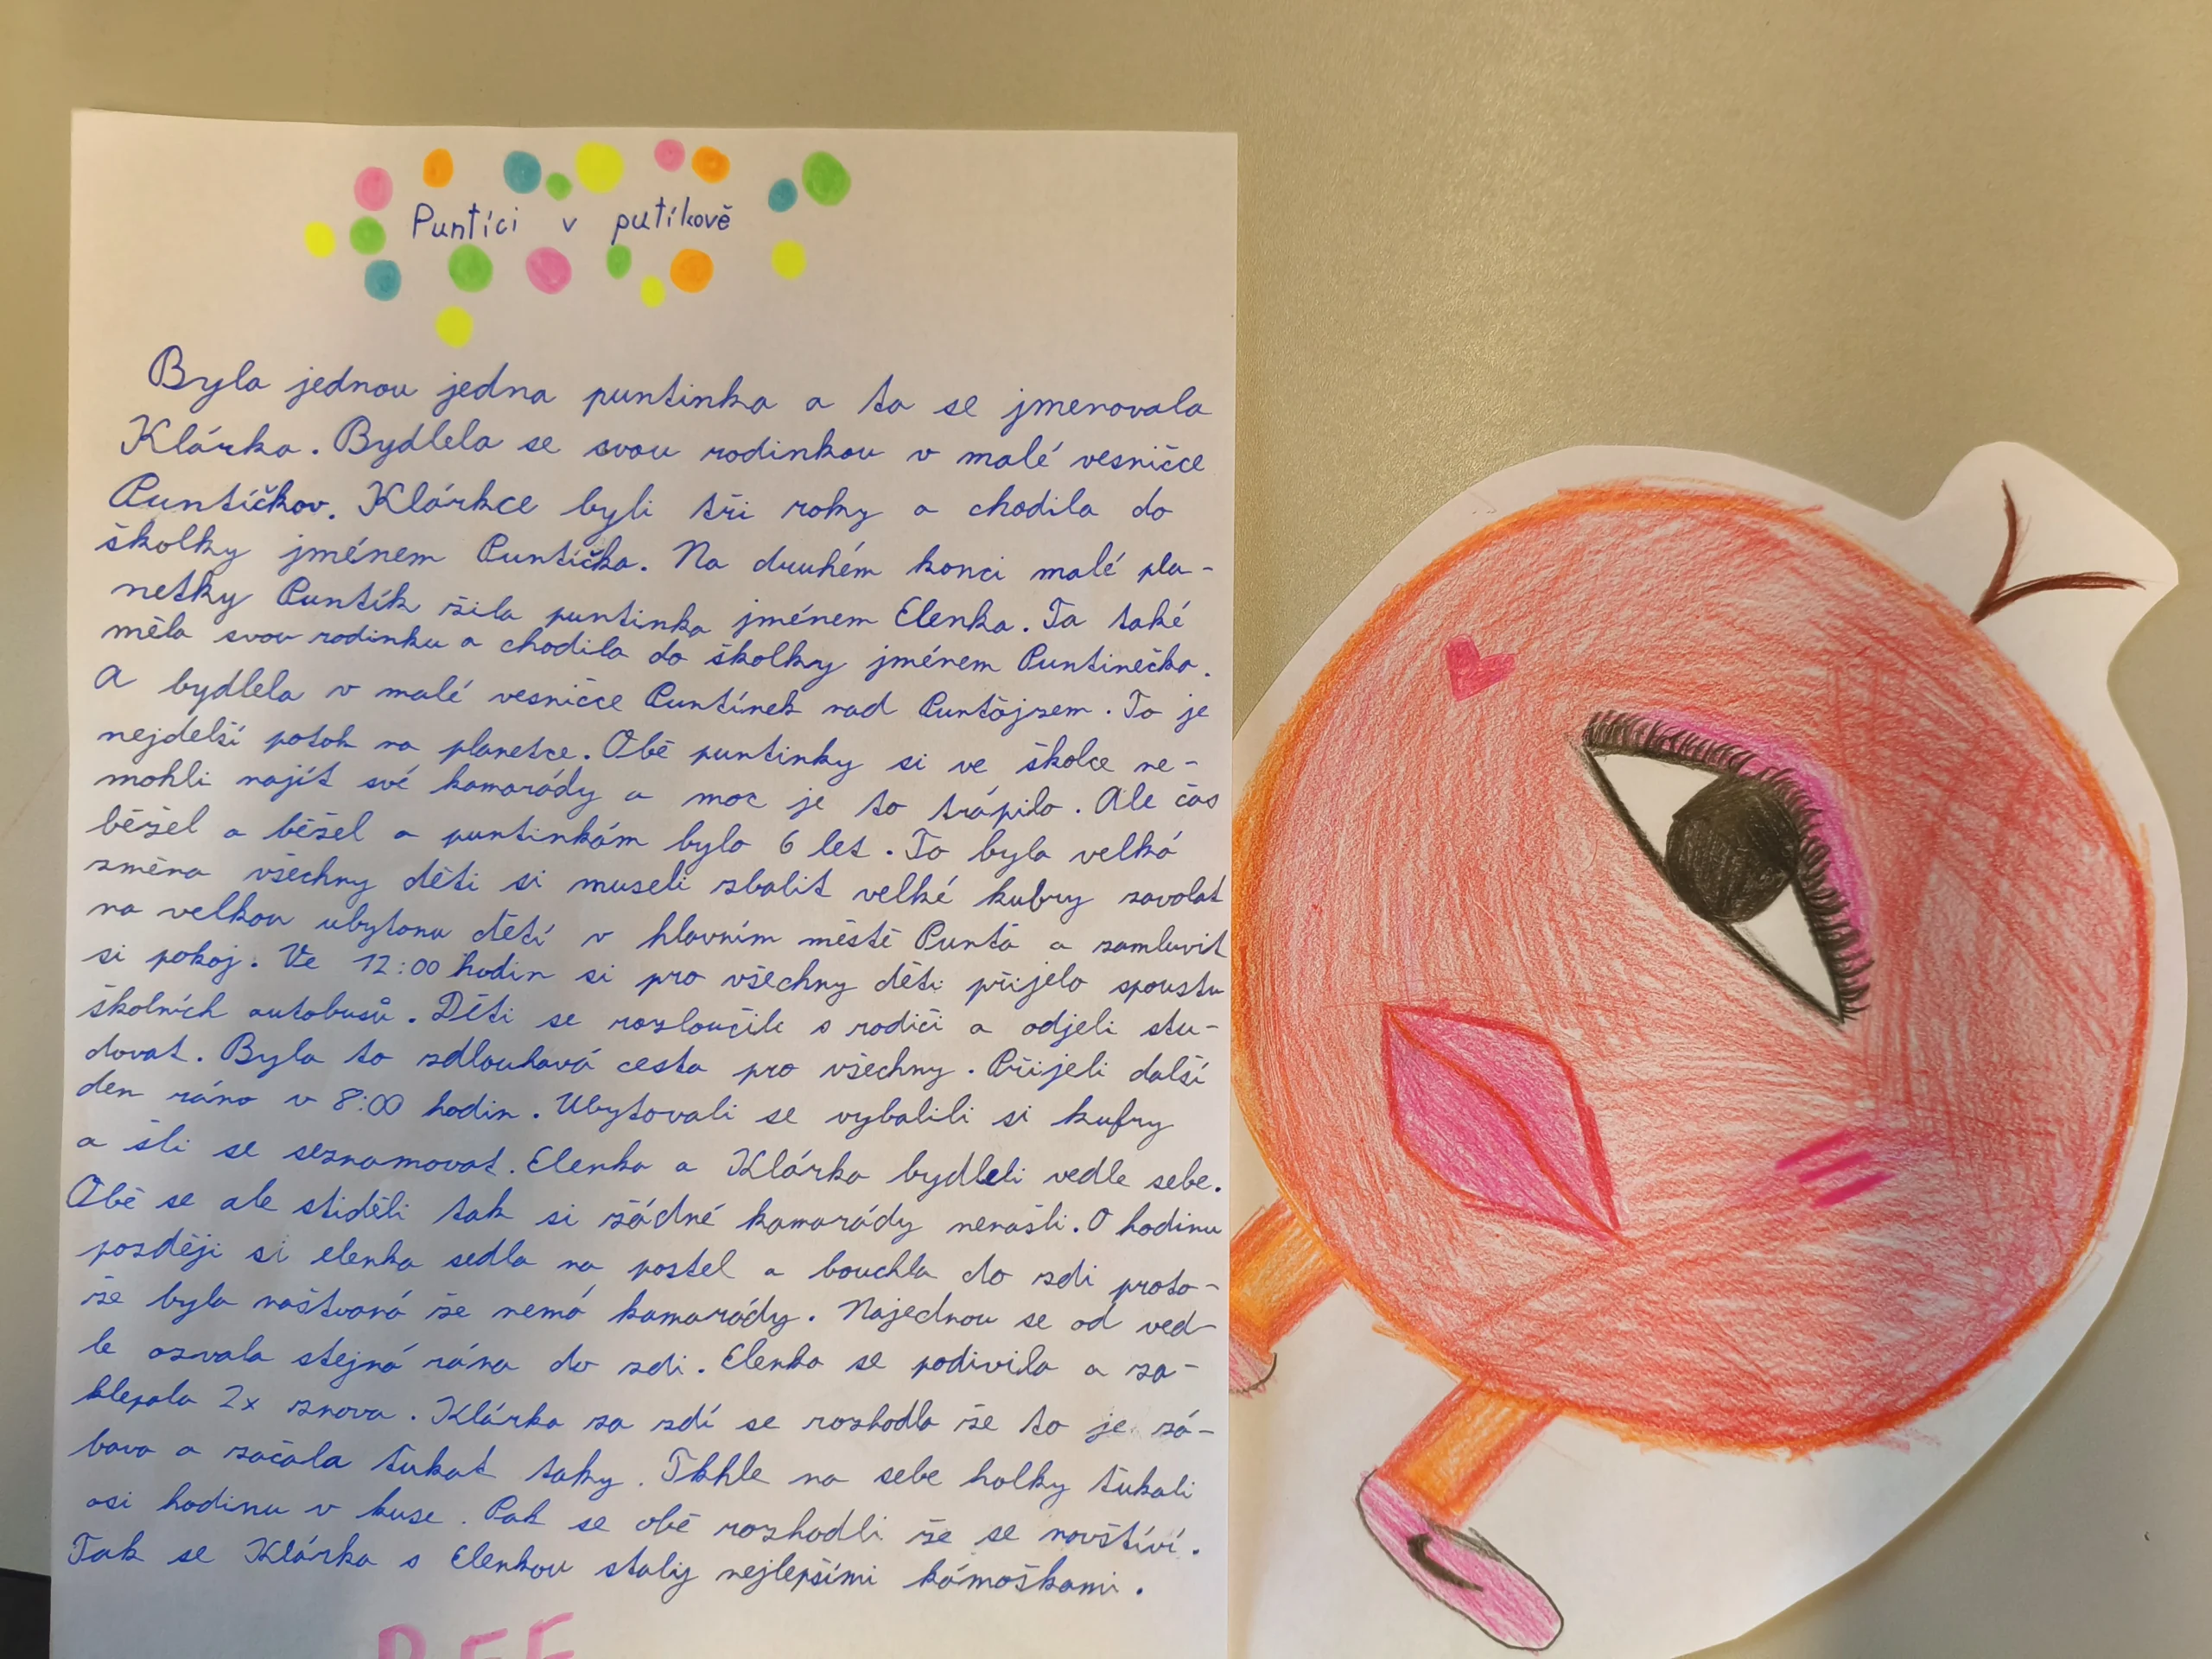 Puntíci v putíkově
Byla jednou jedna puntinka a ta se jmenovala
Klárka. Bydlela se svou rodinkou v malé vesničce
Puntíčkov. Klárkce byli tři roky a chodila do
školky jménem Puntíčka. Na druhém konci malé pla-
netky Puntík žila puntinka jménem Elenka. Ta také
měla svou rodinku a chodila do školky jménem Puntinečka.
A bydlela v malé vesničce Puntínek nad Puntöjzem. To je
nejdelší potok na planetce. Obě puntinky si ve školce ne-
mohli najít své kamarády a moc je to trápilo. Ale čas
běžel a běžel a puntinkám bylo 6 let. To byla velká
změna všechny děti si museli zbalit velké kufry zavolat
na velkou ubytonu dětí v hlavním městě Puntá a zamluvit
si pokoj. Ve 12:00 hodin si pro všechny děti přijelo spoustu
školních autobusů. Děti se rozloučili s rodiči a odjeli stu-
dovat. Byla to zdlouhavá cesta pro všechny. Přijeli další
den ráno v 8:00 hodin. Ubytovali se vybalili si kufry
a šli se seznamovat. Elenka a Klárka bydleli vedle sebe.
Obě se ale stiděli tak si žádné kamarády nenašli. O hodinu
později si elenka sedla na postel a bouchla do zdi proto-
že byla naštvaná že nemá kamarády. Najednou se od ved-
le ozvala stejná rána do zdi. Elenka se podivila a za-
klepala 2x znova. Klárka za zdí se rozhodla že to je zá-
bava a začala ťukat taky. Tkhle na sebe holky ťukali
asi hodinu v kuse. Pak se obě rozhodli že se navštíví.
Tak se Klárka s Elenkou staly nejlepšími kámoškami.